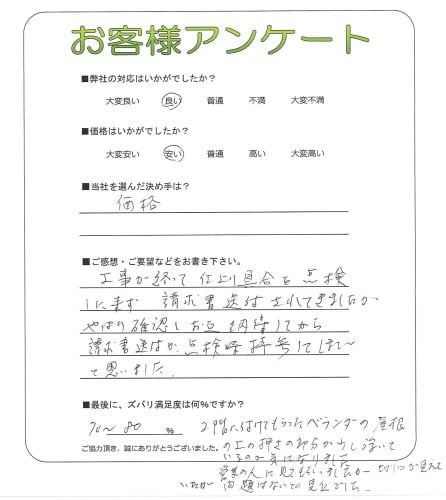 お客様アンケート
■弊社の対応はいかがでしたか?
大変良い 良い 普通 不満 大変不満
■価格はいかがでしたか?
大変安い 安い 普通 高い 大変高い
■当社を選んだ決め手は?
価格
■ご感想・ご要望などをお書き下さい。
工事が終って 仕上り具合を点検
に来ず 請求書送付されてきましたが
やはり確認しお互納得してから
請求書送付か、点検時持参してほしい
と思いました。
■最後に、ズバリ満足度は何%ですか?
70〜80 %
2階に付けてもらったベランダーの屋根
の上の押さの部分が少し浮いて
いるのが気になりました
営業の人に見てもらいましたが
問題はないとの見立でした。
ご協力頂き、誠にありがとうございました。